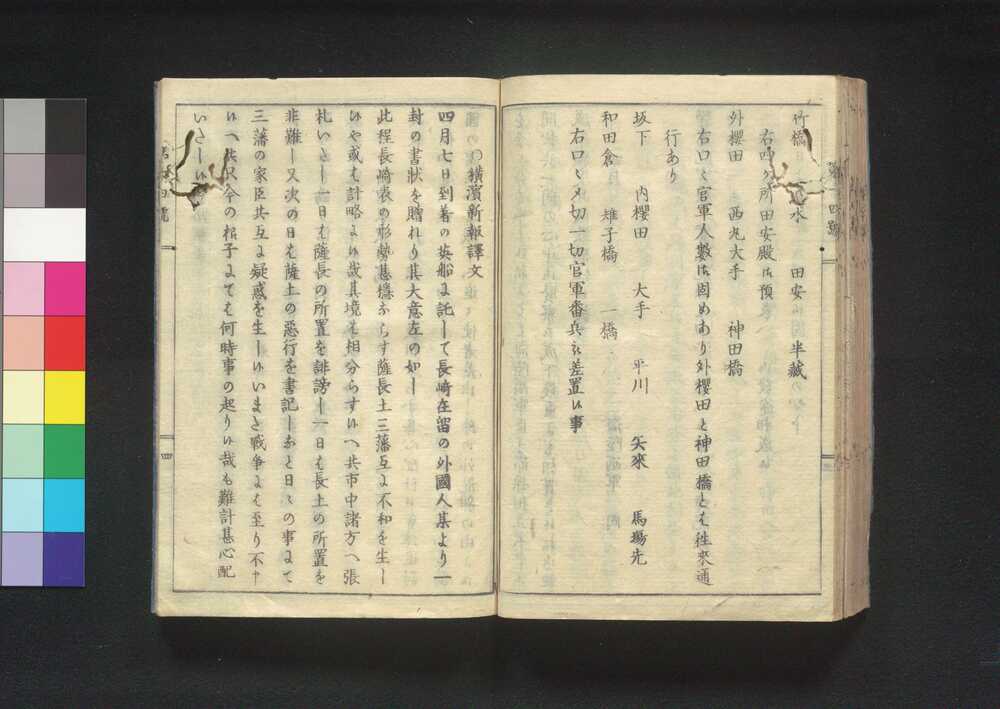 竹橋 清水 田安 半藏
右四ヶ所田安殿江預
外櫻田 西丸大手 神田橋
右口々官軍人數江固めあり外櫻田と神田橋とは徃來通
行あり
坂下 内櫻田 大手 平川 矢來 馬場先
和田倉 雉子橋 一橋
右口々〆切一切官軍番兵を差置い事
○横濱新報譯文
四月七日到着の英船に託して長崎在留の外國人某より一
封の書状を贈れり其大意左の如し
此程長崎表の形勢甚穩ならす薩長土三藩互に不和を生し
い や或は計略にい哉其境も相分らすいへ共市中諸方へ張
札いたし一日は薩長の所置を誹謗し一日は長土の所置を
非難し又次の日は薩土の惡行を書記しなと日々の事にて
三藩の家臣共互に疑惑を生しいいまた戰爭には至り不申
いへ共只今の様子にても何時事の起りい哉も難計甚心配
いたしい